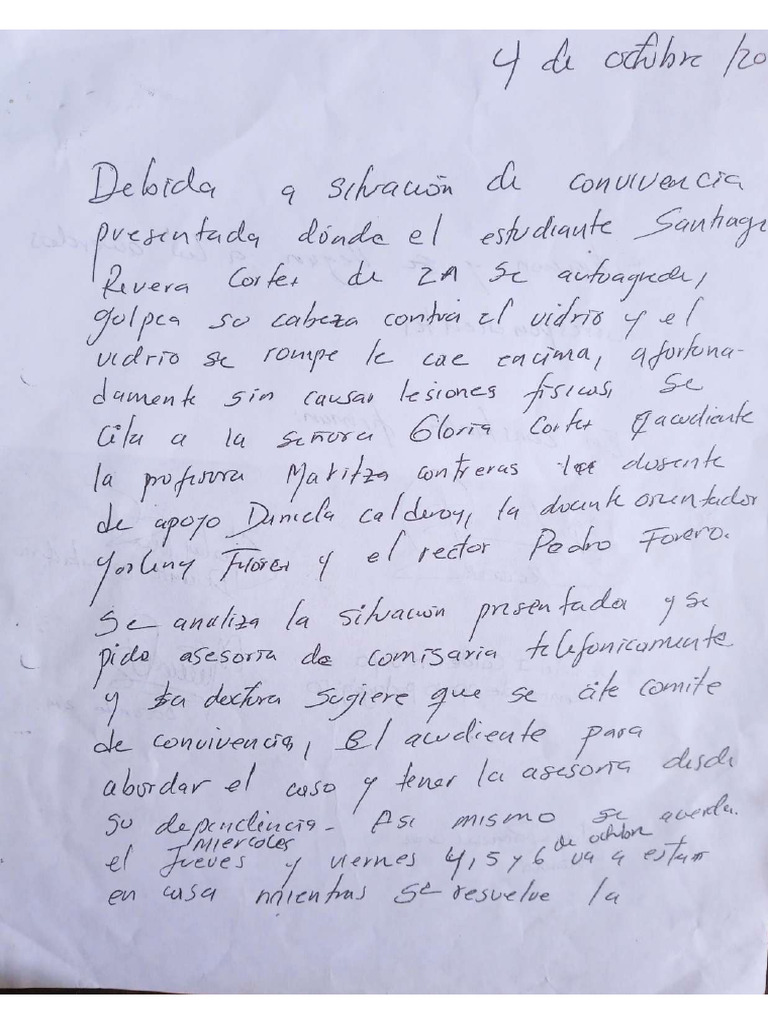 4 de octubre /20
Debida a situación de convivencia
presentada dónde el estudiante Santiag
Rivera Cortes de 2A se autoagrede,
golpea su cabeza contra el vidrio y el
vidrio se rompe le cae encima, afortuna-
damente sin causar lesiones físicas, se
cita a la señora Gloria Cortes acudiente
la profesora Maritza contreras la dosente
de apoyo Daniela calderon, la docente orientador
Yorleny Florez y el rector Pedro Forero.
Se analiza la situación presentada y se
pide asesoria de comisaria telefonicamente
y la doctora sugiere que se cite comite
de convivencia, El acudiente para
abordar el caso y tener la asesoria desde
su dependencia. Asi mismo se acuerda.
miercoles de octubre
el Jueves y viernes 4, 5 y 6 va a estar
en casa mientras se resuelve la